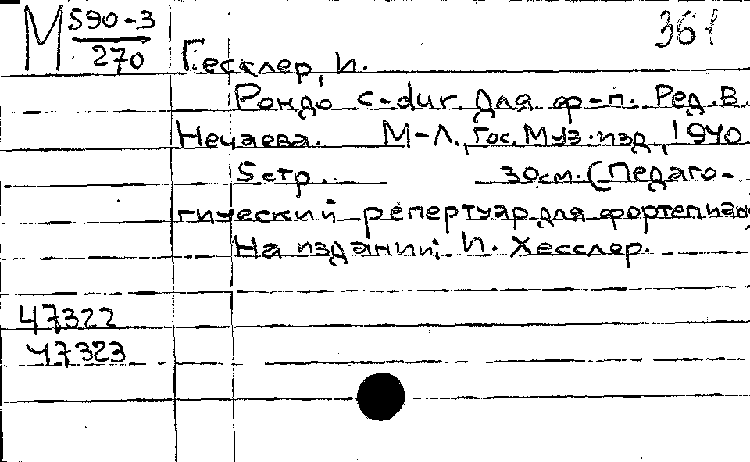 М 590-3
270
361
Гесслер, И.
Рондо C-dur. Для ф-п. Ред. В.
Нечаева. М-Л., Гос. Муз. изд, 1940
5стр. 30см. (Педаго-
гический репертуар для фортепиано
На издании: И. Хесслер.
47322
47323